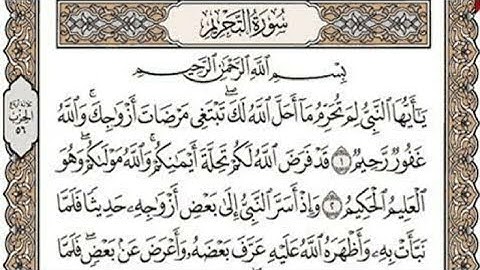 سُورَةُ التَّحْرِيمِ
بِسْمِ اللَّهِ الرَّحْمَٰنِ الرَّحِيمِ
يَا أَيُّهَا النَّبِيُّ لِمَ تُحَرِّمُ مَا أَحَلَّ اللَّهُ لَكَ ۖ تَبْتَغِي مَرْضَاتَ أَزْوَاجِكَ ۚ وَاللَّهُ
غَفُورٌ رَّحِيمٌ ۝١ قَدْ فَرَضَ اللَّهُ لَكُمْ تَحِلَّةَ أَيْمَانِكُمْ ۚ وَاللَّهُ مَوْلَاكُمْ ۖ وَهُوَ
الْعَلِيمُ الْحَكِيمُ ۝٢ وَإِذْ أَسَرَّ النَّبِيُّ إِلَىٰ بَعْضِ أَزْوَاجِهِ حَدِيثًا فَلَمَّا
نَبَّأَتْ بِهِ وَأَظْهَرَهُ اللَّهُ عَلَيْهِ عَرَّفَ بَعْضَهُ وَأَعْرَضَ عَن بَعْضٍ ۖ فَلَمَّا
الحزب
٥٦